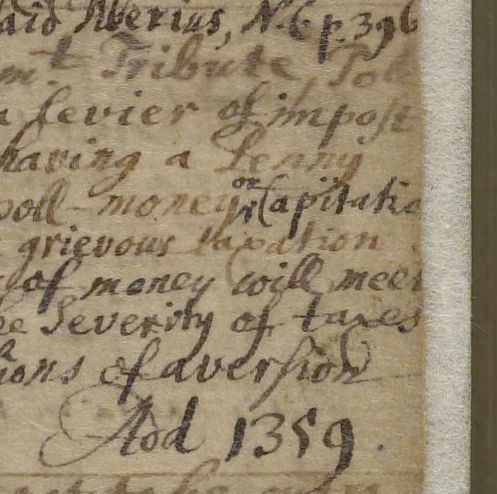 aid Tiberius, N. 6 p. 396
m.t Tribute, Pol
a levier of impost
having a Penny
poll-money or Capitatio
grievous taxation
of money will meet
e Severity of taxes
ions of aversion
Add 1359.